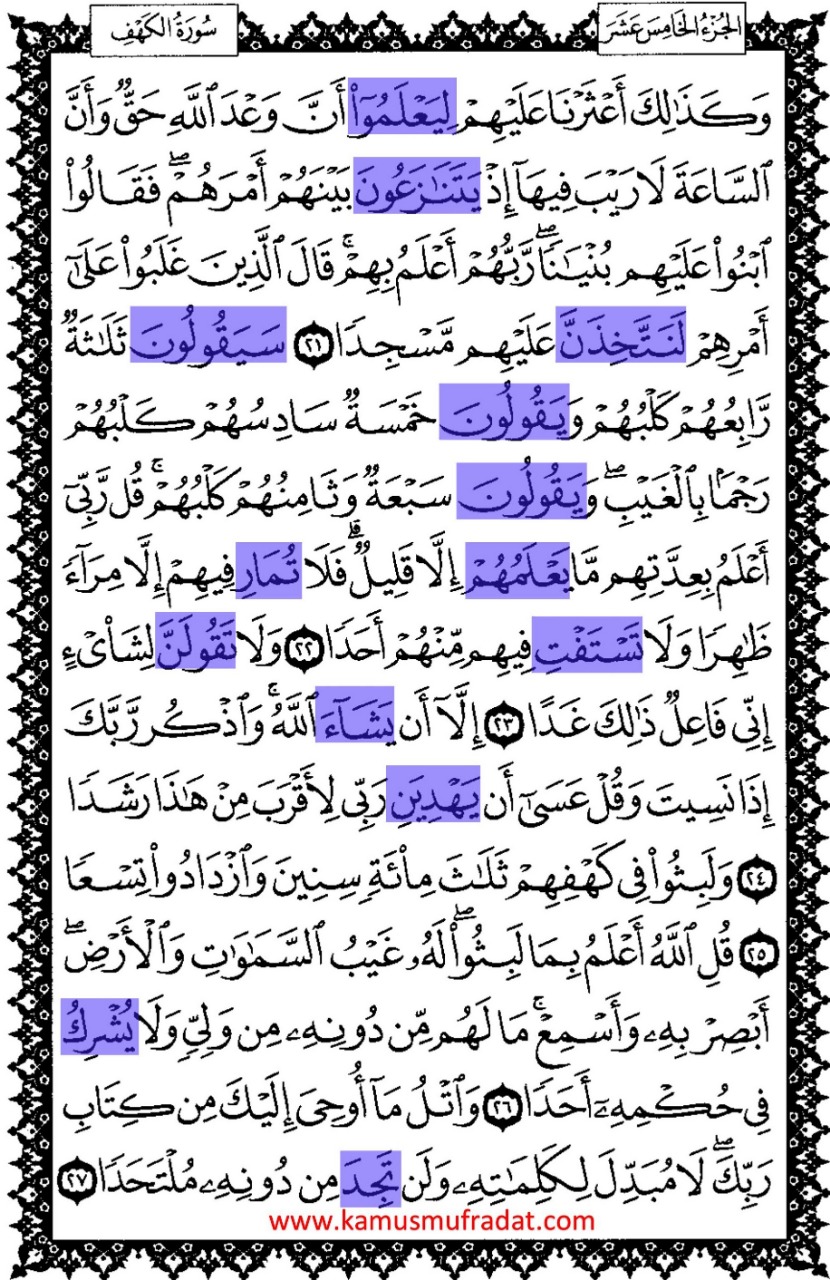 سُورَةُ الكَهْفِ
الجُزْءُ الخَامِسَ عَشَرَ
وَكَذَٰلِكَ أَعْثَرْنَا عَلَيْهِمْ لِيَعْلَمُوٓا۟ أَنَّ وَعْدَ ٱللَّهِ حَقٌّ وَأَنَّ
ٱلسَّاعَةَ لَا رَيْبَ فِيهَآ إِذْ يَتَنَٰزَعُونَ بَيْنَهُمْ أَمْرَهُمْ ۖ فَقَالُوا۟
ٱبْنُوا۟ عَلَيْهِم بُنْيَٰنًا ۖ رَّبُّهُمْ أَعْلَمُ بِهِمْ ۚ قَالَ ٱلَّذِينَ غَلَبُوا۟ عَلَىٰٓ
أَمْرِهِمْ لَنَتَّخِذَنَّ عَلَيْهِم مَّسْجِدًا ٢١ سَيَقُولُونَ ثَلَٰثَةٌ
رَّابِعُهُمْ كَلْبُهُمْ وَيَقُولُونَ خَمْسَةٌ سَادِسُهُمْ كَلْبُهُمْ
رَجْمًۢا بِٱلْغَيْبِ ۖ وَيَقُولُونَ سَبْعَةٌ وَثَامِنُهُمْ كَلْبُهُمْ ۚ قُل رَّبِّىٓ
أَعْلَمُ بِعِدَّتِهِم مَّا يَعْلَمُهُمْ إِلَّا قَلِيلٌ ۗ فَلَا تُمَارِ فِيهِمْ إِلَّا مِرَآءً
ظَٰهِرًا وَلَا تَسْتَفْتِ فِيهِم مِّنْهُمْ أَحَدًا ٢٢ وَلَا تَقُولَنَّ لِشَا۟ىْءٍ
إِنِّى فَاعِلٌ ذَٰلِكَ غَدًا ٢٣ إِلَّآ أَن يَشَآءَ ٱللَّهُ ۚ وَٱذْكُر رَّبَّكَ
إِذَا نَسِيتَ وَقُلْ عَسَىٰٓ أَن يَهْدِيَنِ رَبِّى لِأَقْرَبَ مِنْ هَٰذَا رَشَدًا
٢٤ وَلَبِثُوا۟ فِى كَهْفِهِمْ ثَلَٰثَ مِا۟ئَةٍ سِنِينَ وَٱزْدَادُوا۟ تِسْعًا
٢٥ قُلِ ٱللَّهُ أَعْلَمُ بِمَا لَبِثُوا۟ ۖ لَهُۥ غَيْبُ ٱلسَّمَٰوَٰتِ وَٱلْأَرْضِ ۖ
أَبْصِرْ بِهِۦ وَأَسْمِعْ ۚ مَا لَهُم مِّن دُونِهِۦ مِن وَلِىٍّ وَلَا يُشْرِكُ
فِى حُكْمِهِۦٓ أَحَدًا ٢٦ وَٱتْلُ مَآ أُوحِىَ إِلَيْكَ مِن كِتَابِ
رَبِّكَ ۖ لَا مُبَدِّلَ لِكَلِمَٰتِهِۦ وَلَن تَجِدَ مِن دُونِهِۦ مُلْتَحَدًا ٢٧
www.kamusmufradat.com